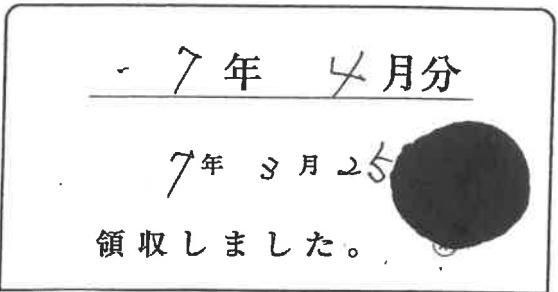 7年 4月分
7年 3月 25
領収しました。